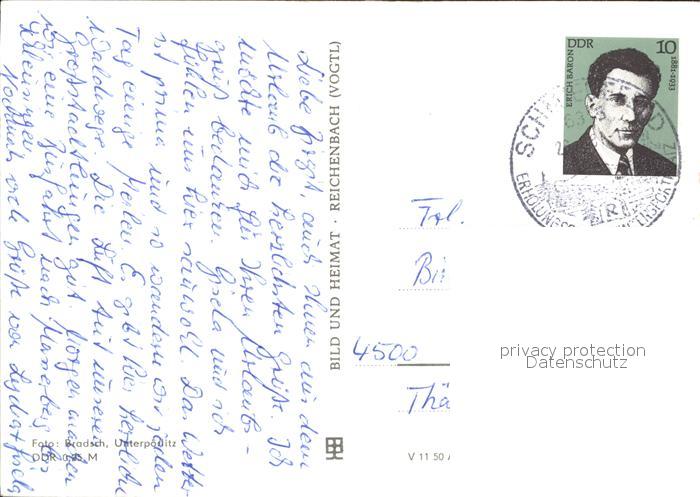 Liebe Birgit, auch Ihnen aus dem
Urlaub die herzlichsten Grüße. Ich
möchte mich für Ihren Urlaubs-
gruß bedanken. Gisela und ich
fühlen uns hier sauwohl. Das Wetter
ist prima und so wandern wir jeden
Tag einige Meilen. Es gibt hier herrliche
Waldwege. Die Luft tut unseren
Großstadtlungen gut. Morgen machen
wir eine
Nochmals viele Grüße von
BILD UND HEIMAT · REICHENBACH (VOGTL)
Foto: Bradsch, Unterpörlitz
DDR 0,25 M
V 11 50
DDR 10
ERICH BARON
1881-1933
Frl.
4500
privacy protection
Datenschutz